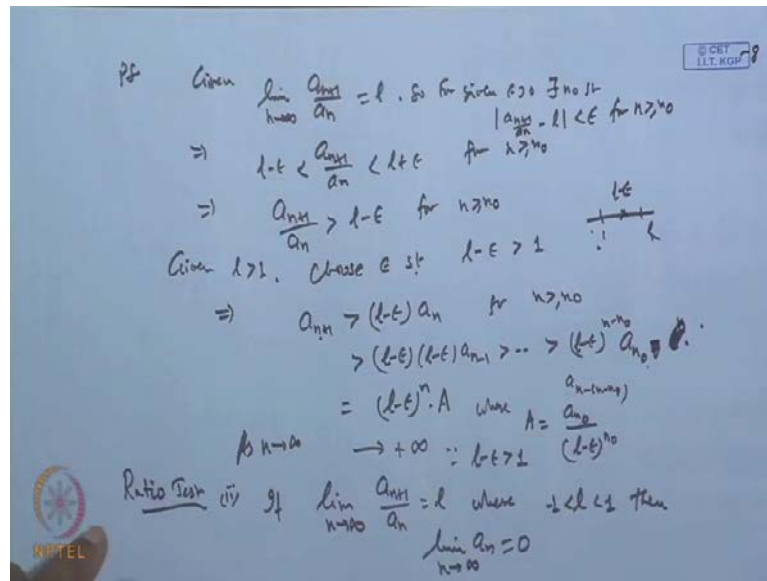 © CET
I.I.T. KGP
Pf. Given lim_{n→∞} a_{n+1}/a_n = l. So for given ε>0 ∃ n₀ st
|a_{n+1}/a_n - l| < ε for n≥n₀
⇒ l-ε < a_{n+1}/a_n < l+ε for n≥n₀
⇒ a_{n+1}/a_n > l-ε for n≥n₀
l-ε
1 l
Given l>1. Choose ε st l-ε > 1
⇒ a_{n+1} > (l-ε) a_n for n≥n₀
> (l-ε)(l-ε) a_{n-1} > ... > (l-ε)^{n-n₀} a_{n₀}
a_{n-(n-n₀)}
= (l-ε)^n . A where A = a_{n₀}/(l-ε)^{n₀}
As n→∞ → +∞ ∵ l-ε>1
Ratio Test (ii) If lim_{n→∞} a_{n+1}/a_n = l where -1<l<1 then
lim_{n→∞} a_n = 0
NPTEL